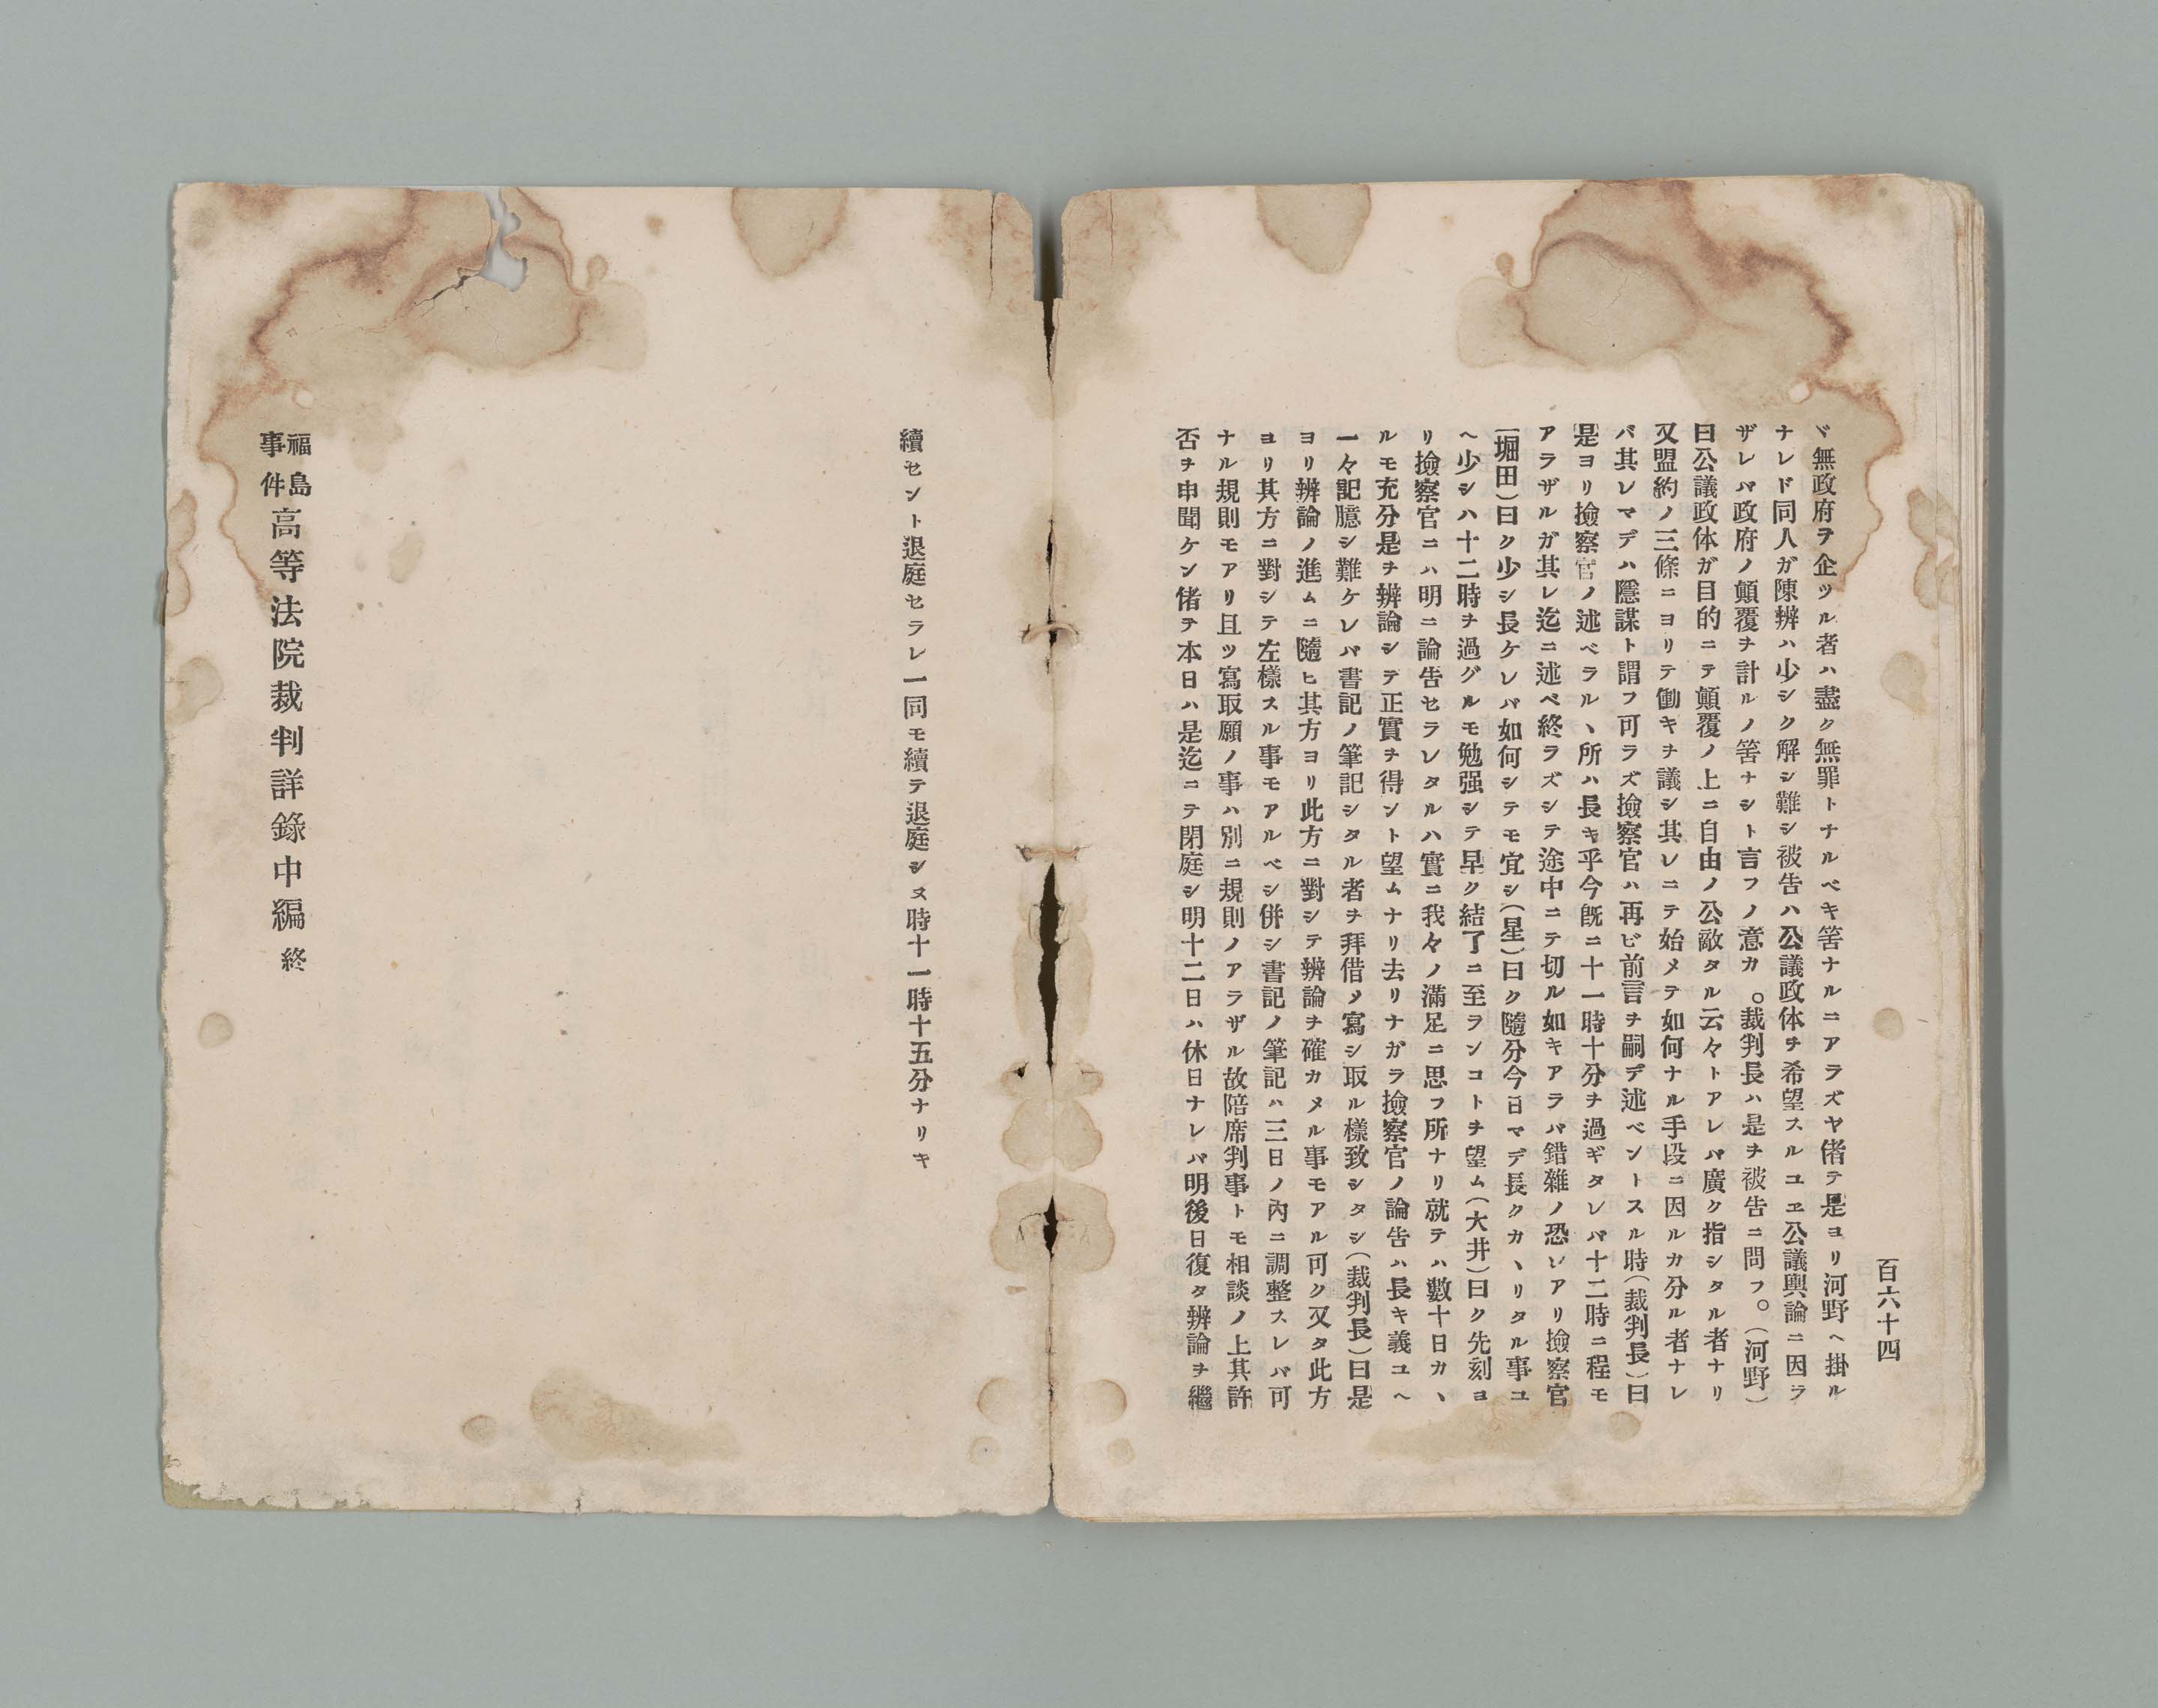 百六十四
ヾ無政府ヲ企ツル者ハ盡ク無罪トナルベキ筈ナルニアラズヤ偖テ是ヨリ河野ヘ掛ル
ナレド同人ガ陳辨ハ少シク解シ難シ被告ハ公議政体ヲ希望スルユヱ公議輿論ニ因ラ
ザレバ政府ノ顛覆ヲ計ルノ筈ナシト言フノ意カ。裁判長ハ是ヲ被告ニ問フ。(河野)
曰公議政体ガ目的ニテ顛覆ノ上ニ自由ノ公敵タル云々トアレバ廣ク指シタル者ナリ
又盟約ノ三條ニヨリテ働キヲ議シ其レニテ始メテ如何ナル手段ニ因ルカ分ル者ナレ
バ其レマデハ隱謀ト謂フ可ラズ撿察官ハ再ビ前言ヲ嗣デ述ベントスル時(裁判長)曰
是ヨリ撿察官ノ述ベラルヽ所ハ長キ乎今既ニ十一時十分ヲ過ギタレバ十二時ニ程モ
アラザルガ其レ迄ニ述ベ終ラズシテ途中ニテ切ル如キアラバ錯雜ノ恐レアリ撿察官
(堀田)曰ク少シ長ケレバ如何シテモ宜シ(星)曰ク隨分今日マデ長クカヽリタル事ユ
ヘ少シハ十二時ヲ過グルモ勉强シテ早ク結了ニ至ランコトヲ望ム(大井)曰ク先刻ヨ
リ撿察官ニハ明ニ論告セラレタルハ實ニ我々ノ滿足ニ思フ所ナリ就テハ數十日カヽ
ルモ充分是ヲ辨論シテ正實ヲ得ント望ムナリ去リナガラ撿察官ノ論告ハ長キ義ユヘ
一々記臆シ難ケレバ書記ノ筆記シタル者ヲ拜借メ寫シ取ル樣致シタシ(裁判長)曰是
ヨリ辨論ノ進ムニ隨ヒ其方ヨリ此方ニ對シテ辨論ヲ確カメル事モアル可ク又タ此方
ヨリ其方ニ對シテ左樣スル事モアルベシ併シ書記ノ筆記ハ三日ノ內ニ調整スレバ可
ナル規則モアリ且ツ寫取願ノ事ハ別ニ規則ノアラザル故陪席判事トモ相談ノ上其許
否ヲ申聞ケン偖テ本日ハ是迄ニテ閉庭シ明十二日ハ休日ナレバ明後日復タ辨論ヲ繼
續セント退庭セラレ一同モ續テ退庭シヌ時十一時十五分ナリキ
福島事件高等法院裁判詳錄中編終